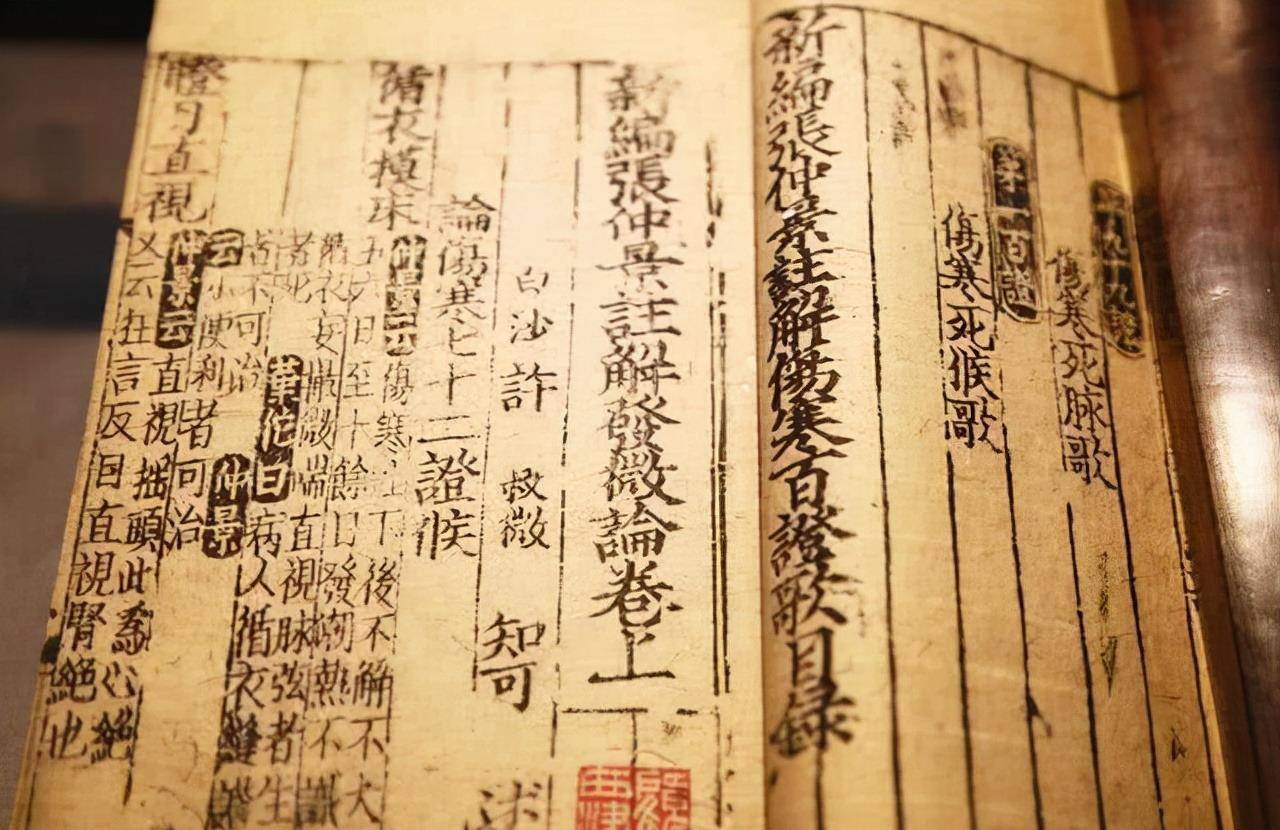 第九九證
傷寒死脉歌
第一百證
傷寒死候歌
新編張仲景註解傷寒百證歌目錄
新編張仲景註解發微論卷上
白沙許 叔微 知可 述
論傷寒七十二證候
循衣摸床
仲景云傷寒吐下後不解不大
五六日至十餘日發潮熱不識
循衣妄撮微喘直視脉弦者生
者死華佗曰病人循衣縫
者不可治仲景
云小便利者可治
瞪目直視
仲景云直視搖頭此爲心絶
又云狂言反目直視腎絶也